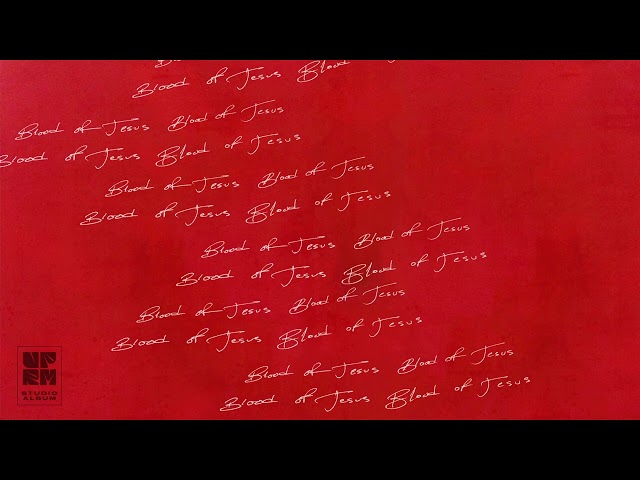 Blood of Jesus Blood of Jesus
Blood of Jesus Blood of Jesus
Blood of Jesus Blood of Jesus
Blood of Jesus Blood of Jesus
Blood of Jesus Blood of Jesus
Blood of Jesus Blood of Jesus
Blood of Jesus Blood of Jesus
Blood of Jesus Blood of Jesus
Blood of Jesus Blood of Jesus
Blood of Jesus Blood of Jesus
Blood of Jesus Blood of Jesus
STUDIO
ALBUM